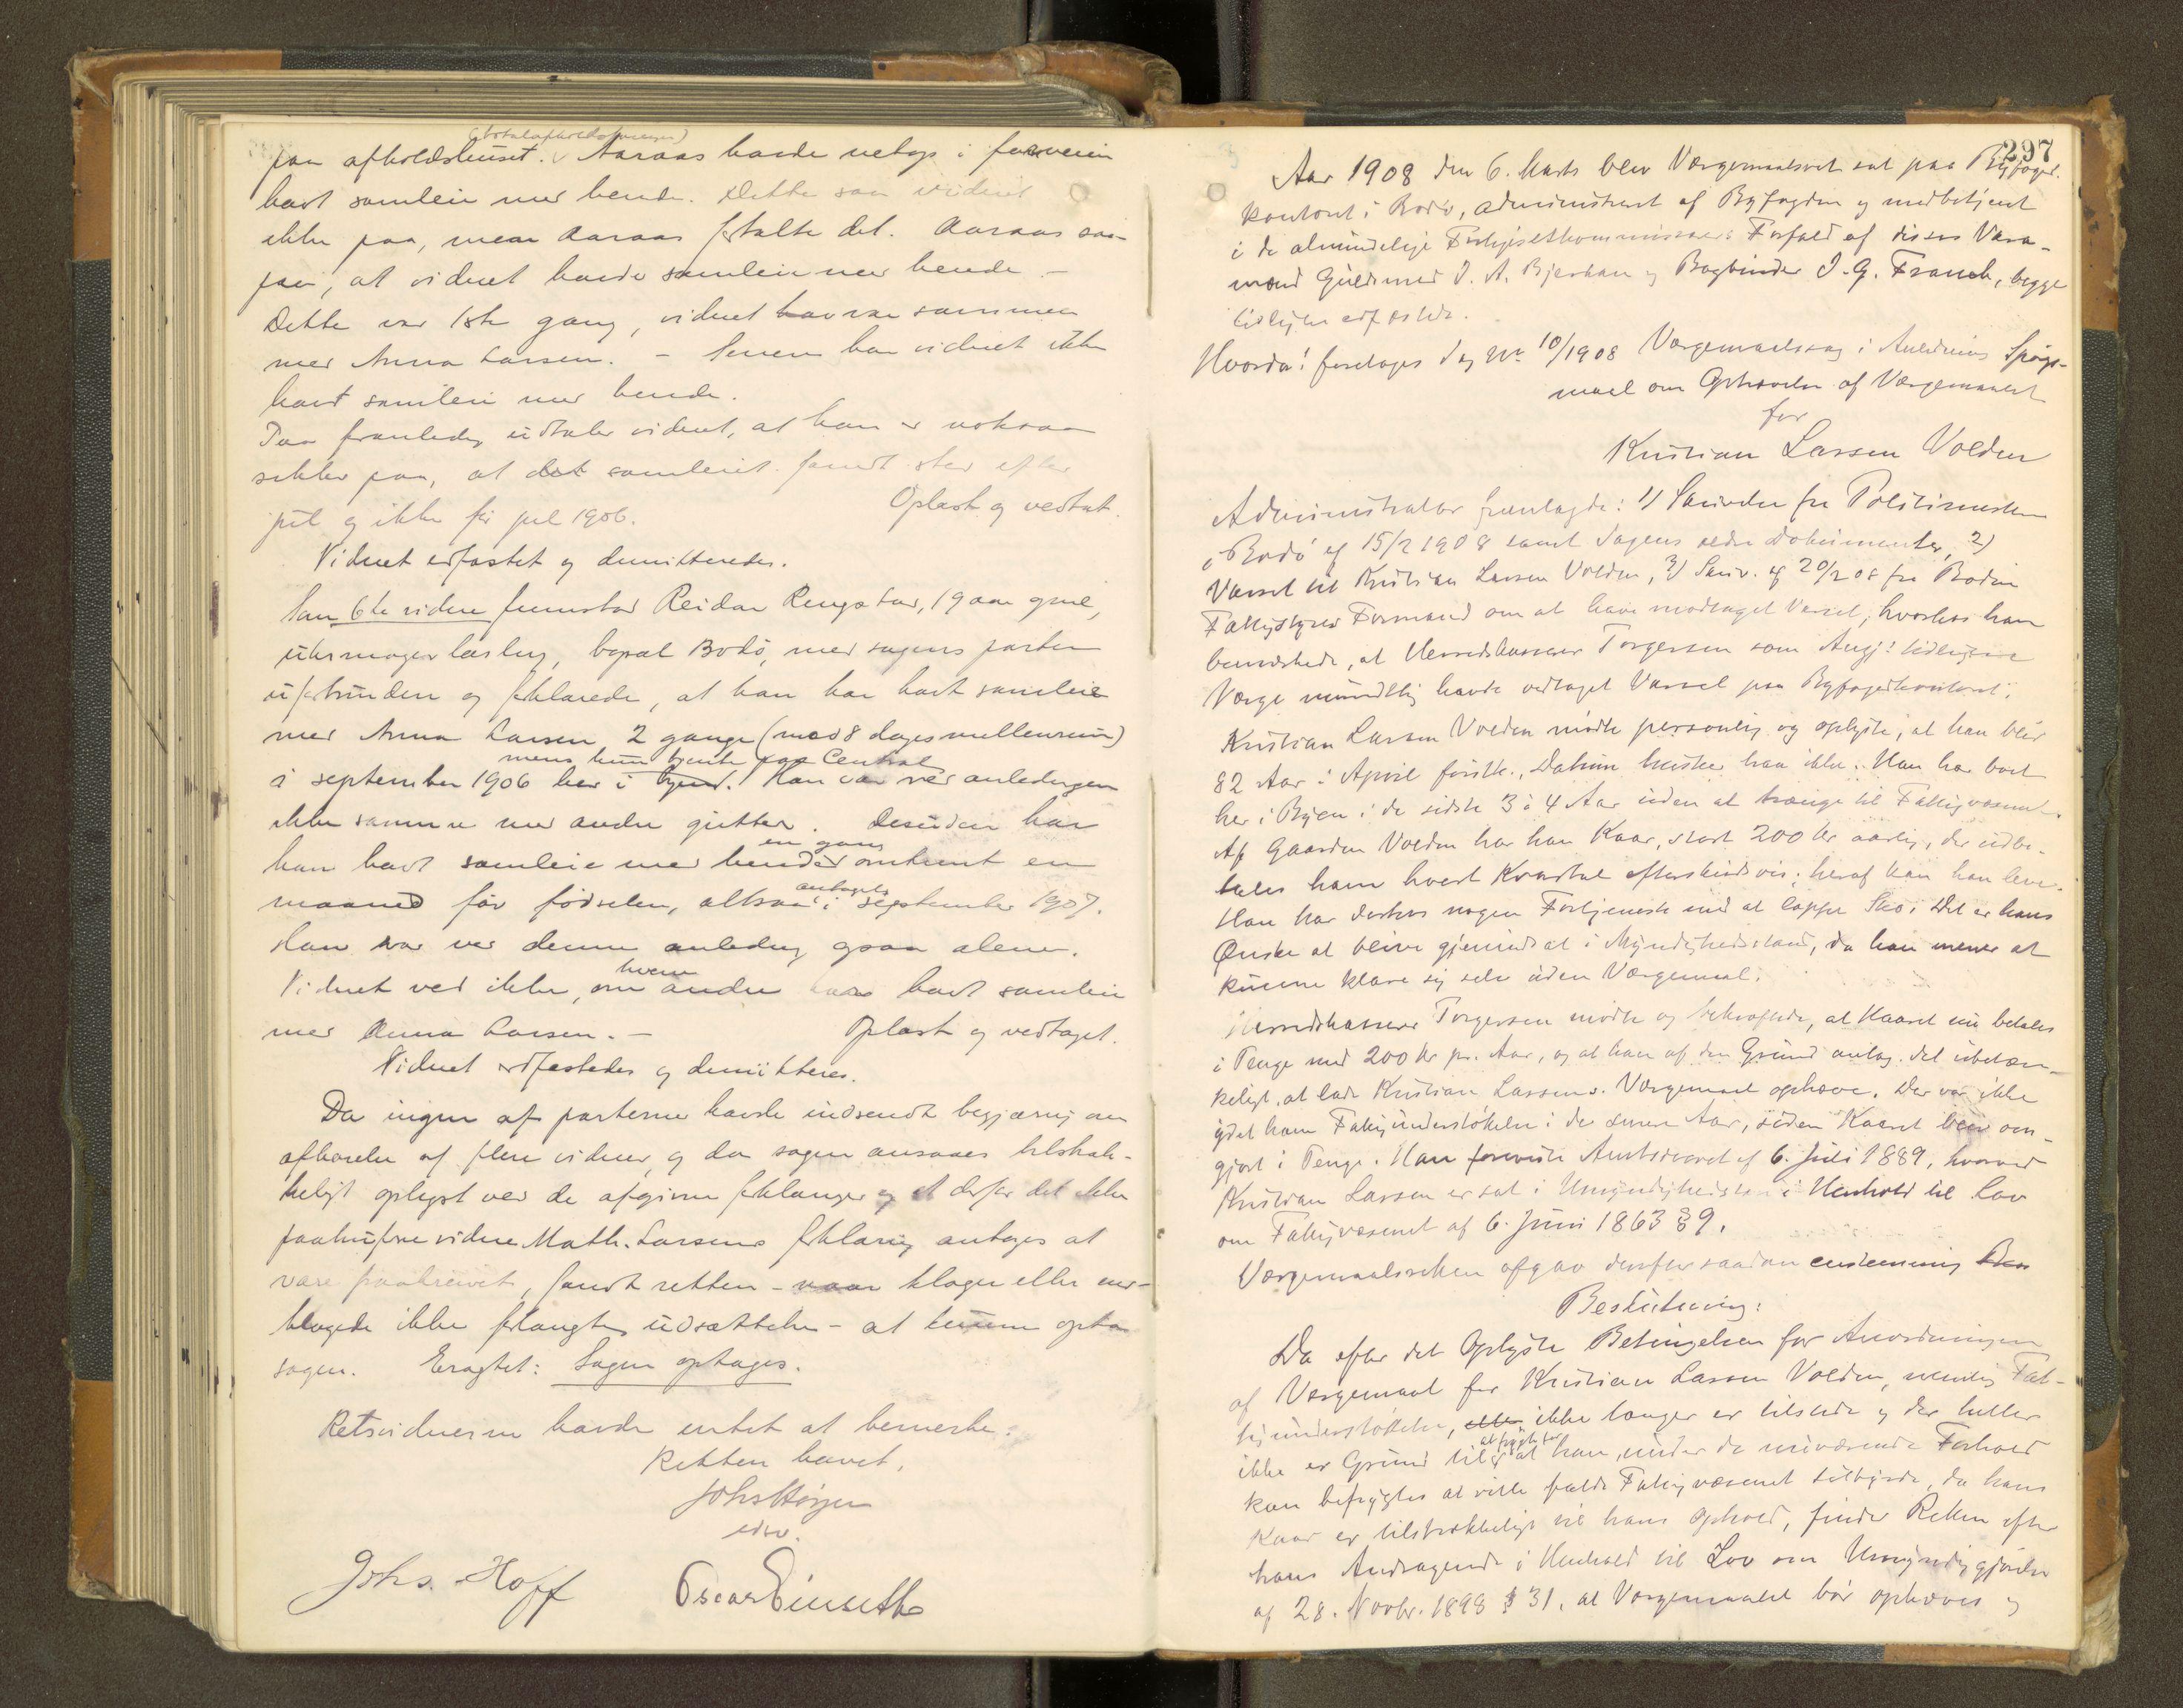 (totalafholdshuset)
paa afholdshuset. Aaraas havde netop i forveien
havt samleie med hende. Dette saa vidnet
ikke paa, men Aaraas fortalte det. Aaraas saa
paa, at vidnet havde samleie med hende. –
Dette var 1ste gang, vidnet var sammen
med Anna Larsen. – Senere har vidnet ikke
havt samleie med hende.
Paa foranledng udtaler vidnet, at han er noksaa
sikker paa, at det samleiet fandt sted efter
jul og ikke før jul 1906. Oplæst og vedtat.
Vidnet edfæstet og demitteredes.
Som 6te vidne fremstod Reidar Ringstad, 19 aar gml,
uhrmagerlærling, bopæl Bodø, med sagens parter
uforbunden og forklarede, at han har havt samleie
med Anna Larsen 2 gange (med 8 dages mellemrum)
mens hun tjente paa Central
i september 1906 her i byen. Han var ved anledningen
ikke sammen med andre gutter. Desuden har
en gang
han havt samleie med hende omtrent en
antagelig
maaned før fødselen, altsaa i september 1907.
Han var ved denne anledng ogsaa alene.
hvem
Vidnet ved ikke, om andre har havt samleie
med Anna Larsen. – Oplæst og vedtaget.
Vidnet edfæstedes og demitteres.
Da ingen af parterne havde indsendt begjæring om
afhørelse af flere vidner, og da sagen ansaaes tilstræk-
keligt oplyst ved de afgivne forklaringer og at derfor det ikke
paahufne vidne Math. Larsens forklaring antages at
være paakrævet, fandt retten – naar klager eller ind-
klagede ikke forlangte udsættelse – at kunne opta
sagen. Eragtet: Sagen optages.
Retsvidnerne havde intet at bemerke.
Retten hævet.
Johs Hörgen
edsv.
Johs. Hoff Oscar Einseth
297
Aar 1908 den 6. Marts blev Værgemaalsret sat paa Byfoged-
kontoret i Bodø, administreret af Byfogden og medbetjent
i de almindelige Forligelseskommissærers Forfald af disses Vara-
mænd Guldsmed J. A. Bjerkan og Bogbinder J. G. Franck, begge
tidligere edfæstede.
Hvorda: foretoges Sag No 10/1908 Værgemaalssag i Anledning Spørgs-
maal om Ophævelse af Værgemaalet
for
Kristian Larsen Volden
Administrator fremlagde: 1) Skrivelse fra Politimesteren
i Bodø af 15/2 1908 samt Sagens ældre Dokumenter, 2)
Varsel til Kristian Larsen Volden, 3) Skriv. af 20/2 08 fra Bodin
Fattigstyres Formand om at have modtaget Varsel, hvorhos han
bemærkede, at Herredskasserer Torgersen som Angj: tidligere
Værge mundtlig havde vedtaget Varsel paa Byfogedkontoret.
Kristian Larsen Volden mødte personlig og oplyste, at han blir
82 Aar i April førstk., Datum husker han ikke. Han har boet
her i Byen i de sidste 3 à 4 Aar uden at trænge til Fattigvæsenet.
Af Gaarden Volden har han Kaar, stort 200 kr aarlig, der udbe-
tales ham hvert Kvartal efterskudsvis; heraf kan han leve.
Han har derhos nogen Fortjeneste med at lappe Sko. Det er hans
Ønske at blive gjenindsat i Myndighedsstand, da han mener at
kunne klare sig selv uden Værgemaal.
Herredskasserer Torgersen mødte og bekræftede, at Kaaret nu betales
i Penge med 200 kr pr. Aar, og at han af den Grund antog det ubetæn-
keligt at lade Kristian Larsens Værgemaal ophæve. Der var ikke
ydet ham Fattigunderstøttelse i de senere Aar, siden Kaaret blev om-
gjort i Penge. Han foreviste Amtsdecret af 6. Juli 1889, hvorved
Kristian Larsen er sat i Umyndighedsstand i Henhold til Lov
om Fattigvæsenet af 6. Juni 1863 § 9.
Værgemaalsretten afgav derefter saadan enstemmig
Beslutning:
Da efter det Oplyste Betingelsen for Anordningen
af Værgemaal for Kristian Larsen Volden, nemlig Fat-
tigunderstøttelse, ikke længer er tilstede og der heller
at frygte for
ikke er Grund til at han under de nuværende Forhold
kan befrygtes at ville falde Fattigvæsenet til byrde, da hans
Kaar er tilstrækkeligt til hans Ophold, finder Retten efter
hans Andragende i Henhold til Lov om Umyndiggjørelse
af 28. Novbr. 1898 § 31, at Værgemaalet bør ophæves og